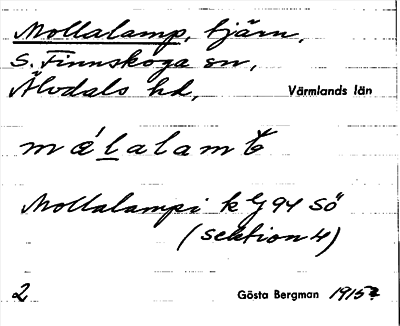 Mollalamp, tjärn,
S. Finnskoga sn,
Älvdals hd, Värmlands län
Mollalampi k G 94 sö
(sektion 4)
2 Gösta Bergman 1915